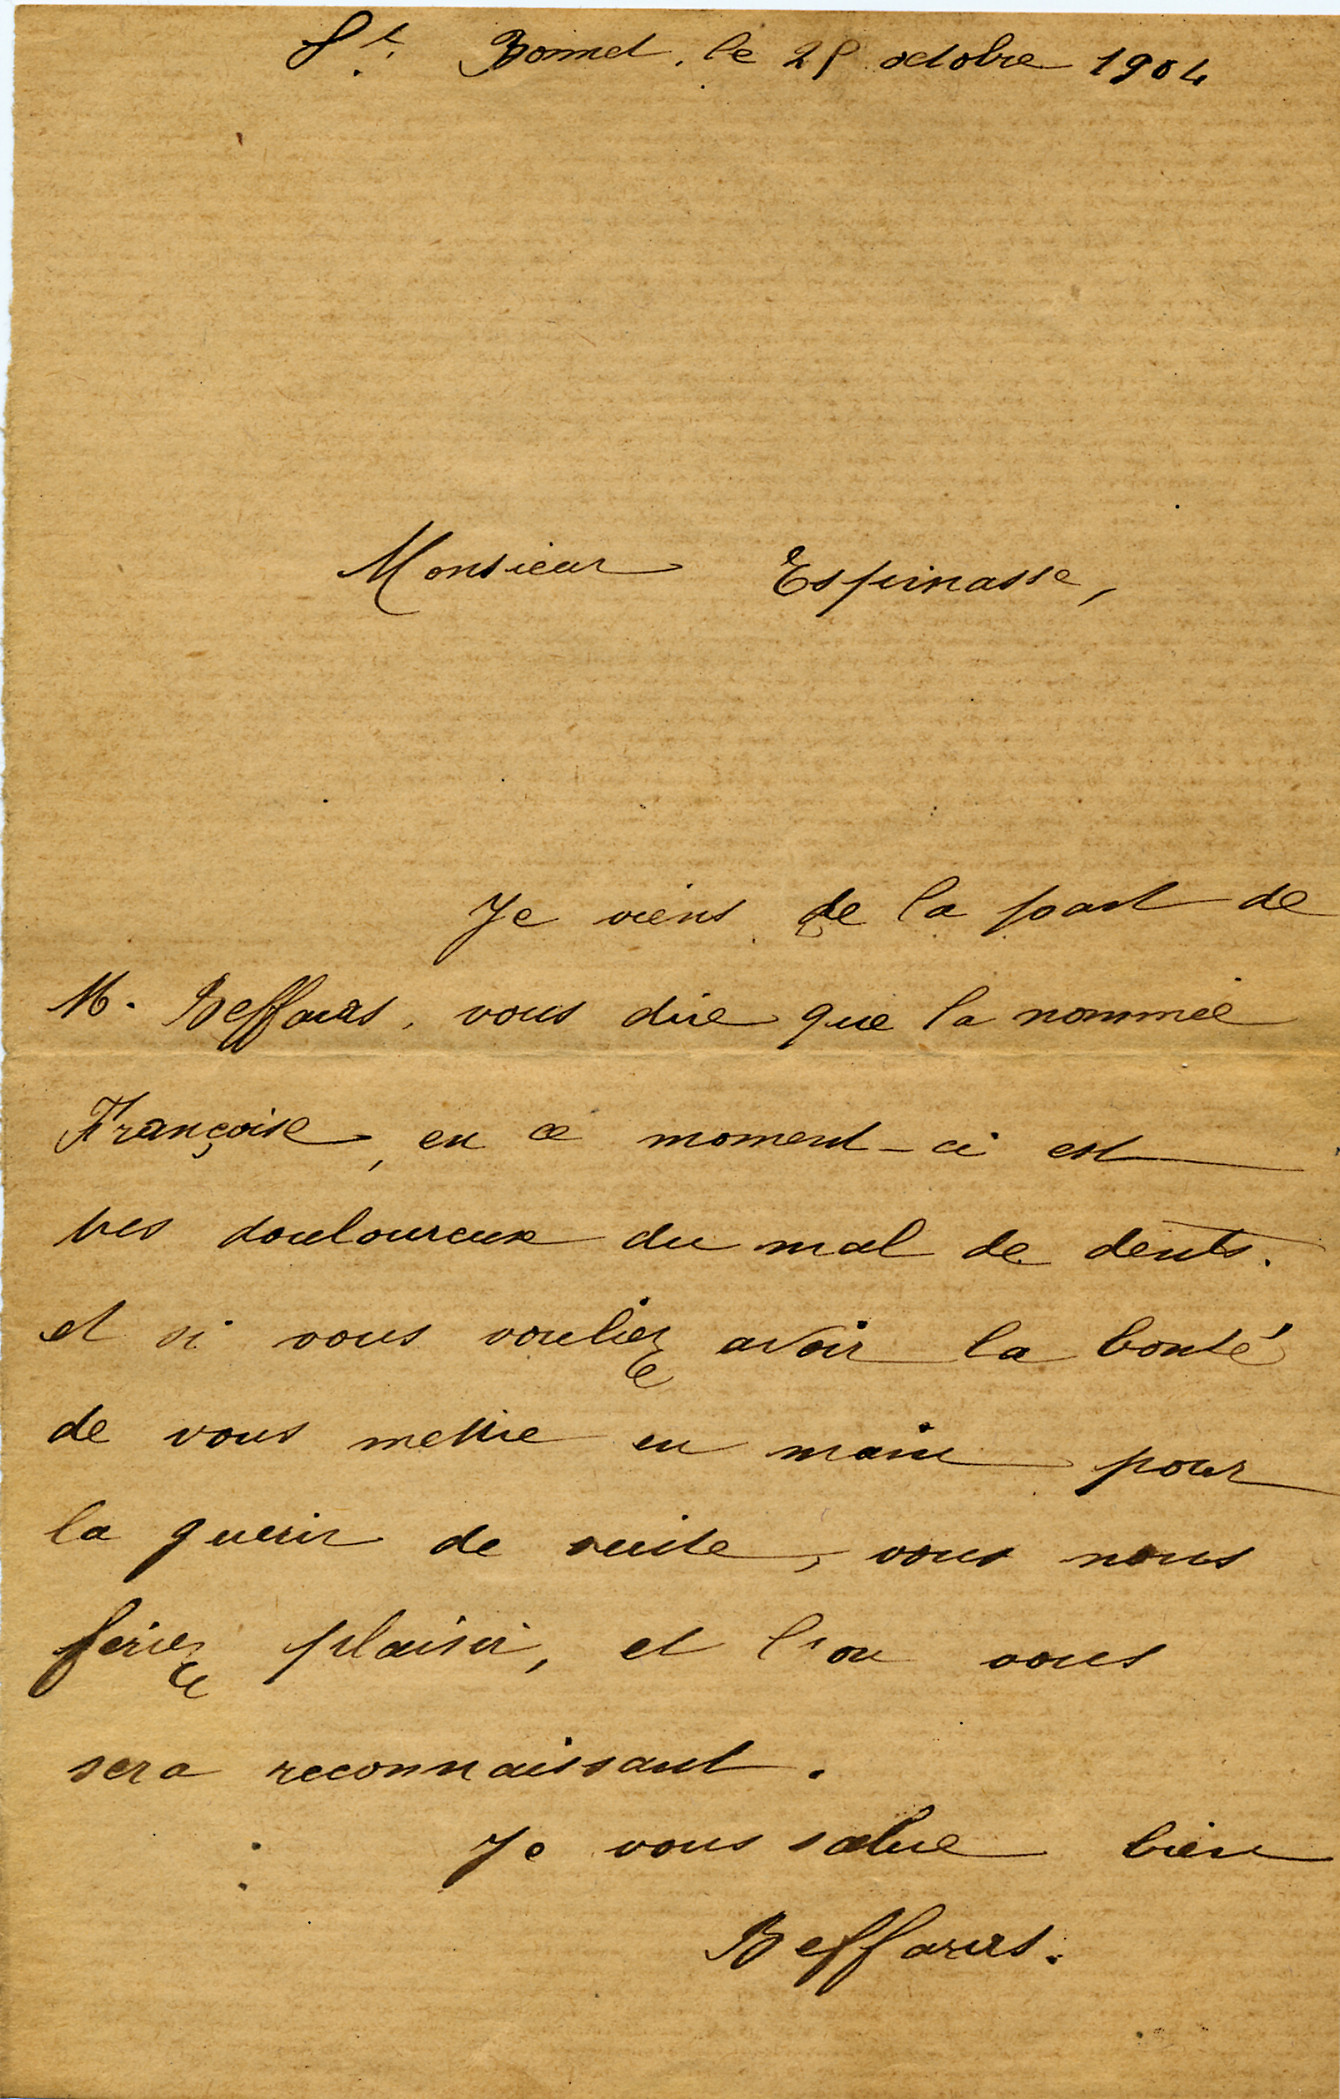 St. Bonnet, le 25 octobre 1904
Monsieur Espinasse,
Je viens de la part de
M. Beffaras, vous dire que la nommée
Françoise, en ce moment-ci est
tres douloureux du mal de dents.
et si vous vouliez avoir la bonté
de vous mettre en main pour
la guerir de suite, vous nous
feriez plaisir, et l'on vous
sera reconnaissant.
Je vous salue bien
Beffaras.